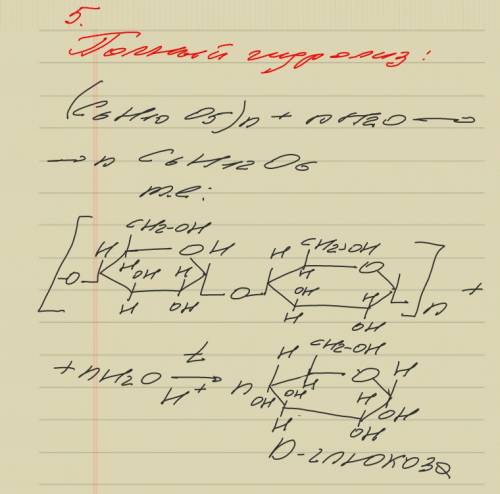 5.
Полный гидролиз:
(C6H10O5)n + nH2O →
→ n C6H12O6
т.е:
CH2-OH CH2-OH
H O H H O
H OH H H
O O n +
H OH OH H
H OH
+ nH2O t CH2-OH
H+ n H O H
H OH H
OH OH
H OH
D-глюкоза